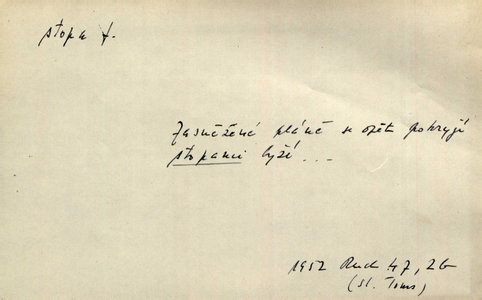 stopa f.
Zasněžené pláně se opět pokryjí
stopami lyží...
1952 Rud 47, 2b
(sl. Toms)